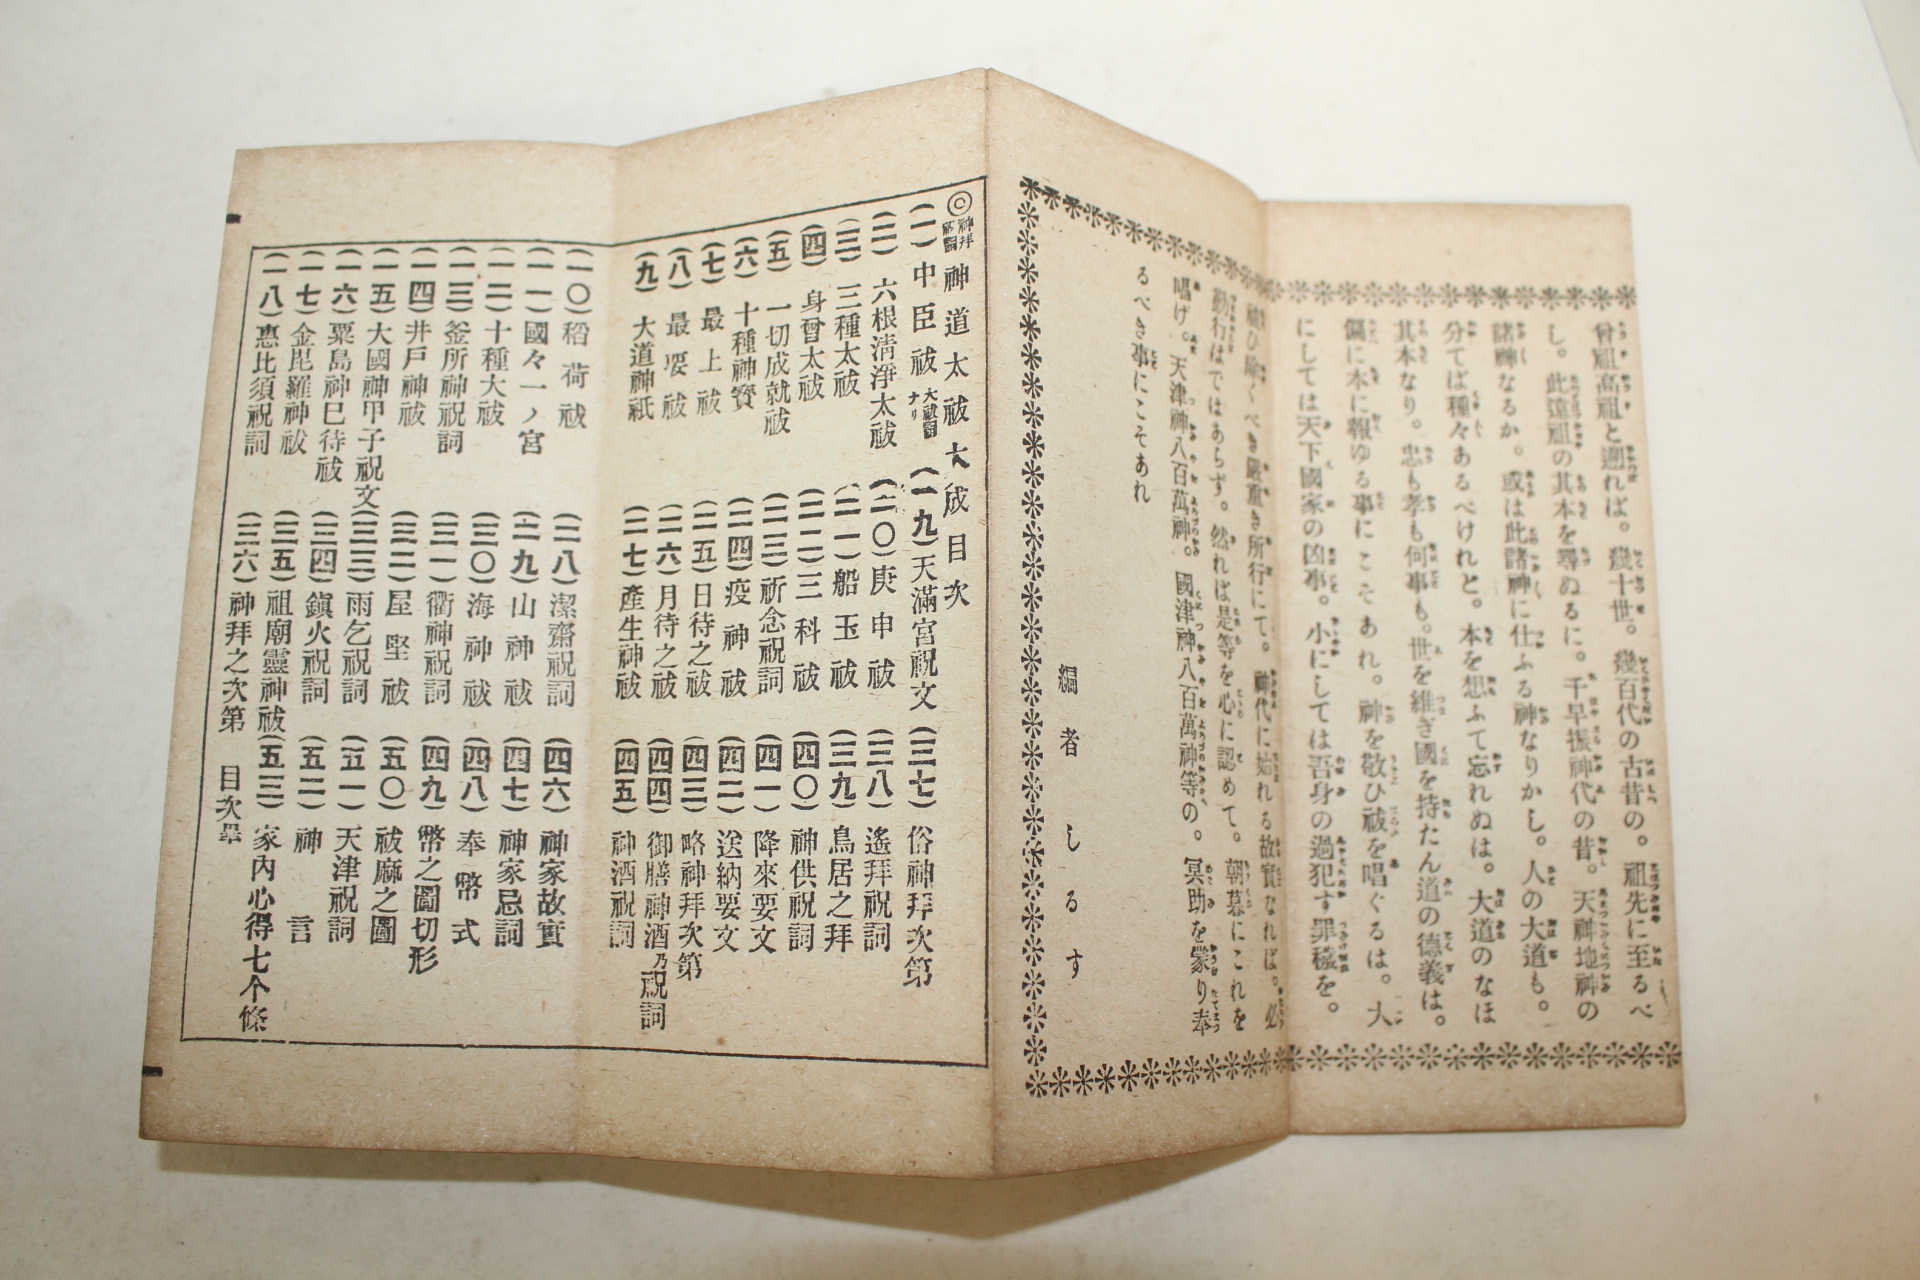 曾祖高祖と遡れば。幾十世。幾百代の古昔の。祖先に至るべ
し。此遠祖の其本を尋ぬるに。千早振神代の昔。天神地祇の
諸神なるか。或は此諸神に仕ふる神なりかし。人の大道も。
分てば種々あるべけれと。本を想ふて忘れぬは。大道のなほ
其本なり。忠も孝も何事も。世を維ぎ國を持たん道の德義は。
偏に本に報ゆる事にこそあれ。神を敬ひ祓を唱ぐるは。大
にしては天下國家の凶事。小にしては吾身の過犯す罪穢を。
ひ除くべき嚴重き所行にて。神代に始れる故實なれば。必
勤行はではあらず。然れば是等を心に認めて。朝暮にこれを
唱げ。天津神八百萬神。國津神八百萬神等の。冥助を蒙り奉
るべき事にこそあれ
編者しるす
◎神拜祝詞 神道太祓大成目次
(一)中臣祓 大祓詞ナリ
(二)六根清淨太祓
(三)三種太祓
(四)身曾太祓
(五)一切成就祓
(六)十種神寶
(七)最上祓
(八)最要祓
(九)大道神祇
(一〇)稻荷祓
(一一)國々一ノ宮
(一二)十種大祓
(一三)釜所神祝詞
(一四)井戸神祓
(一五)大國神甲子祝文
(一六)粟島神巳待祓
(一七)金毘羅神祓
(一八)惠比須祝詞
(一九)天滿宮祝文
(二〇)庚申祓
(二一)船玉祓
(二二)三科祓
(二三)祈念祝詞
(二四)疫神祓
(二五)日待之祓
(二六)月待之祓
(二七)產生神祓
(二八)潔齋祝詞
(二九)山神祓
(三〇)海神祓
(三一)衢神祝詞
(三二)屋堅祓
(三三)雨乞祝詞
(三四)鎭火祝詞
(三五)祖廟靈神祓
(三六)神拜之次第
(三七)俗神拜次第
(三八)遙拜祝詞
(三九)鳥居之拜
(四〇)神供祝詞
(四一)降來要文
(四二)送納要文
(四三)略神拜次第
(四四)御膳神酒乃祝詞
(四五)神酒祝詞
(四六)神家故實
(四七)神家忌詞
(四八)奉幣式
(四九)幣之圖切形
(五〇)祓麻之圖
(五一)天津祝詞
(五二)神言
(五三)家內心得七个條
目次畢